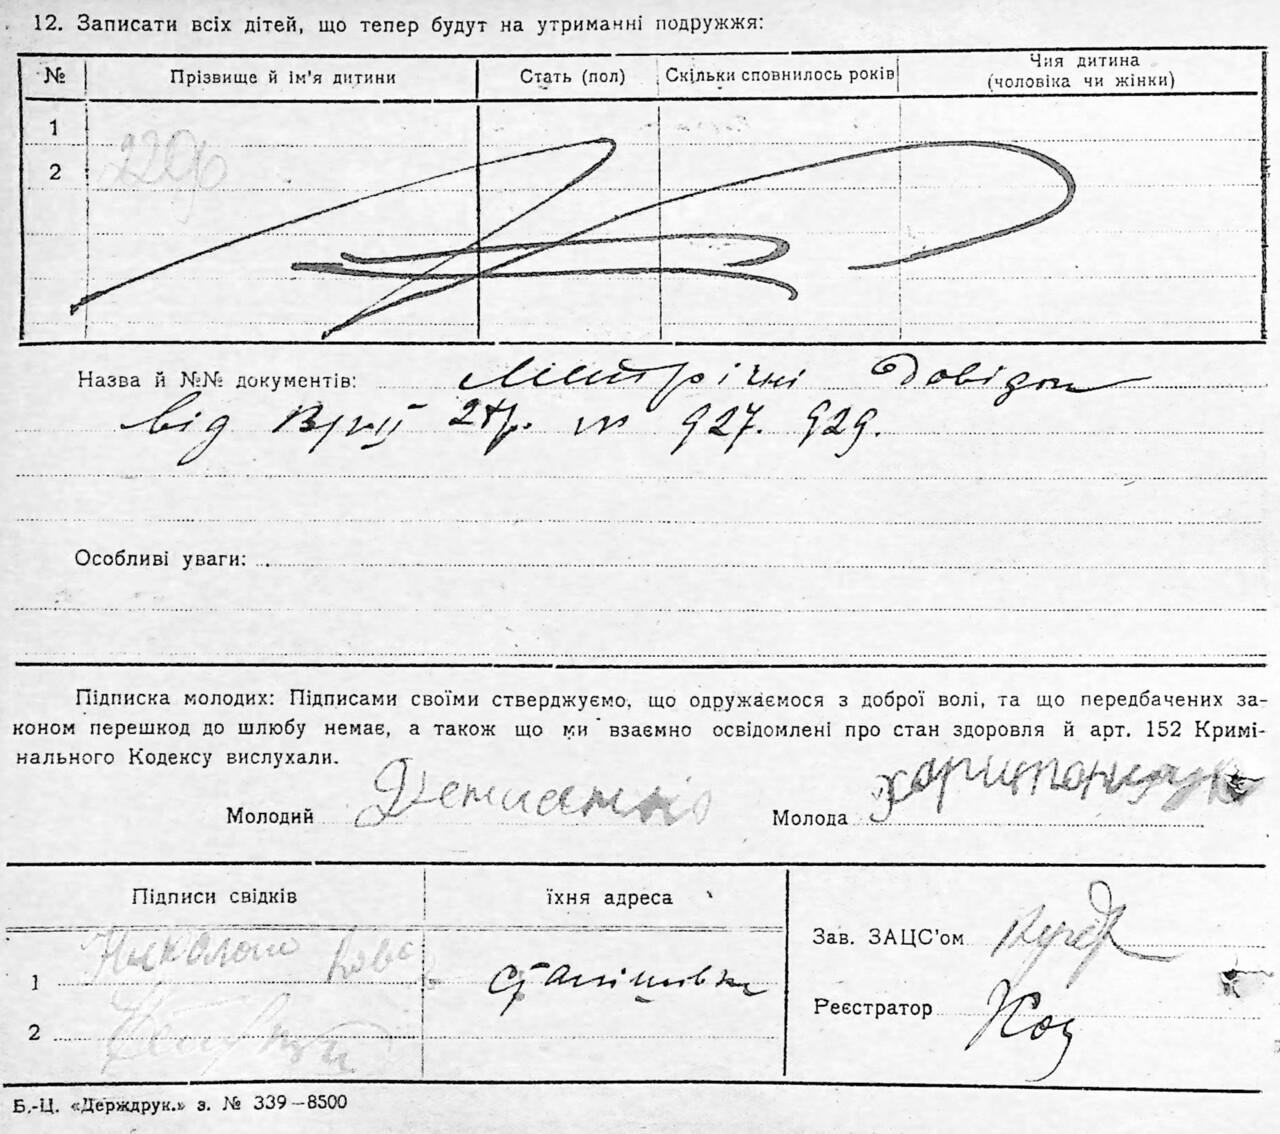 12. Записати всіх дітей, що тепер будут на утриманні подружжя:
№ Прізвище й ім'я дитини Стать (пол) Скільки сповнилось років Чия дитина (чоловіка чи жінки)
1
2
Назва й №№ документів: Метрічні довідки
від 927. 929.
Особливі уваги:
Підписка молодих: Підписами своїми стверджуємо, що одружаємося з доброї волі, та що передбачених за-
коном перешкод до шлюбу немає, а також що ми взаємно освідомлені про стан здоровля й арт. 152 Кримі-
нального Кодексу вислухали.
Молодий Молода
Підписи свідків їхня адреса
Зав. ЗАЦС'ом
1
Реєстратор
2
Б.-Ц. «Держдрук.» з. № 339—8500